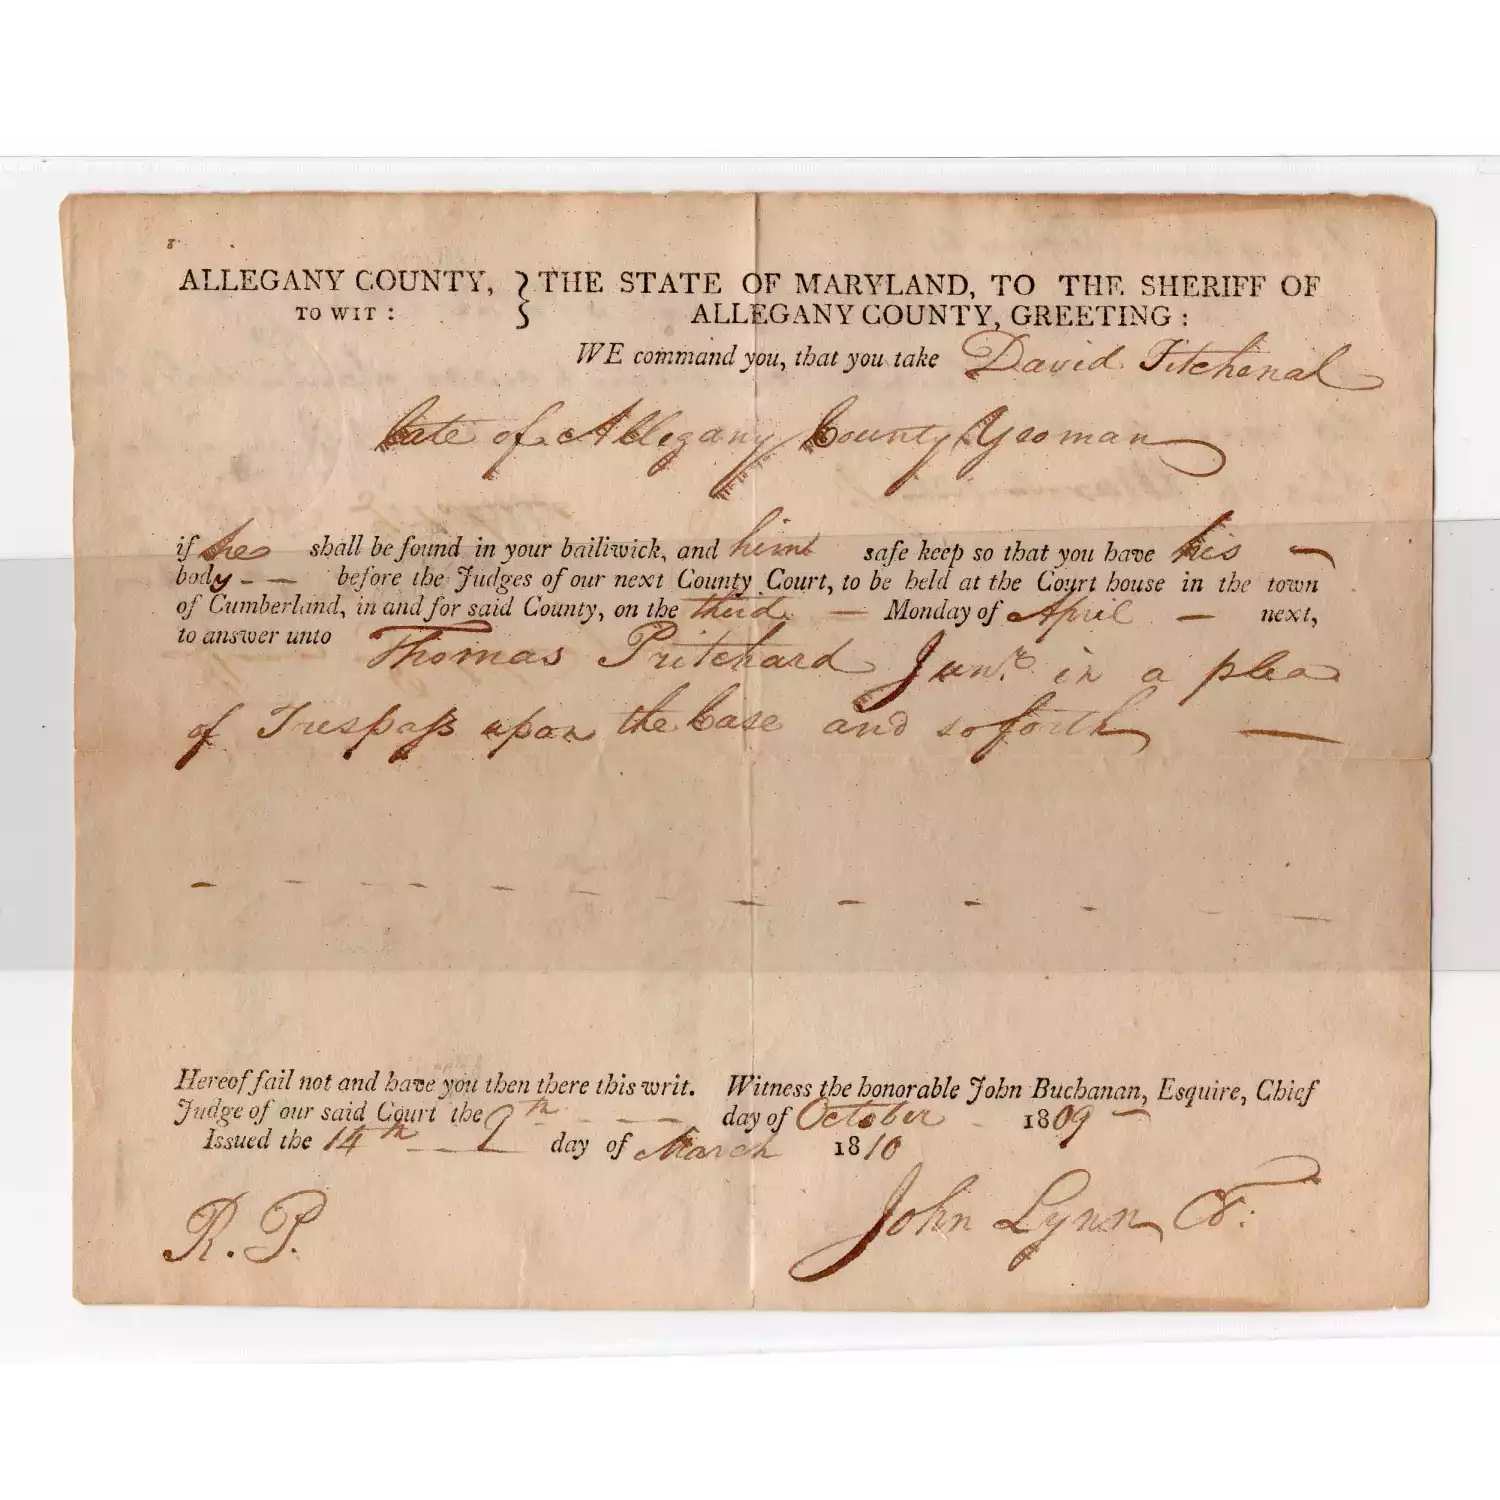 ALLEGANY COUNTY, } THE STATE OF MARYLAND, TO THE SHERIFF OF
TO WIT : ALLEGANY COUNTY, GREETING :
WE command you, that you take David Fitchenal
late of Allegany County Yeoman
if he shall be found in your bailiwick, and him safe keep so that you have his —
body - — before the Judges of our next County Court, to be held at the Court house in the town
of Cumberland, in and for said County, on the third — Monday of April — next,
to answer unto Thomas Pritchard Junr. in a plea
of Trespass upon the Case and so forth —
Hereof fail not and have you then there this writ. Witness the honorable John Buchanan, Esquire, Chief
Judge of our said Court the 9th - — — day of October - 1809 —
Issued the 14th — — day of March 1810
R. P. John Lynn Clk: